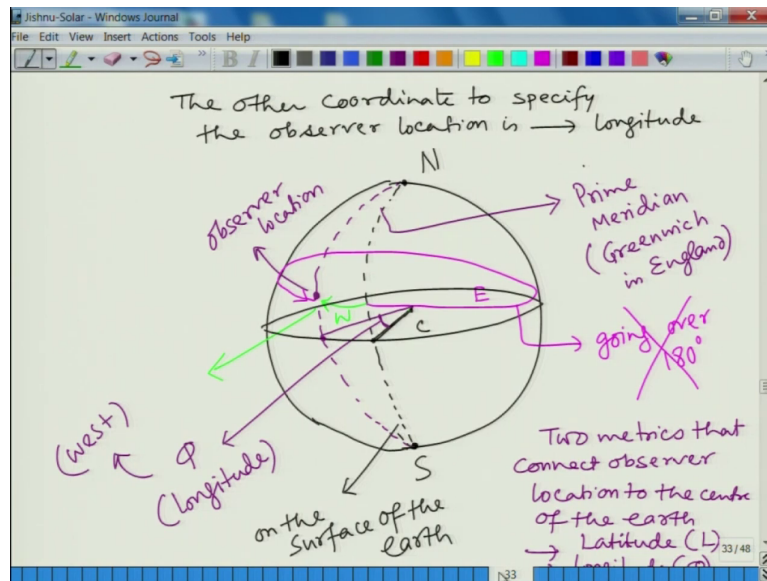 Jishnu-Solar - Windows Journal
File Edit View Insert Actions Tools Help
B I
The other coordinate to specify
the observer location is → longitude
N
observer
location
Prime
Meridian
(Greenwich
in England)
E
W
C
going over
180°
(west)
φ
(longitude)
S
on the
surface of the
earth
Two metrics that
connect observer
location to the centre
of the earth
→ Latitude (L)
33/48
33